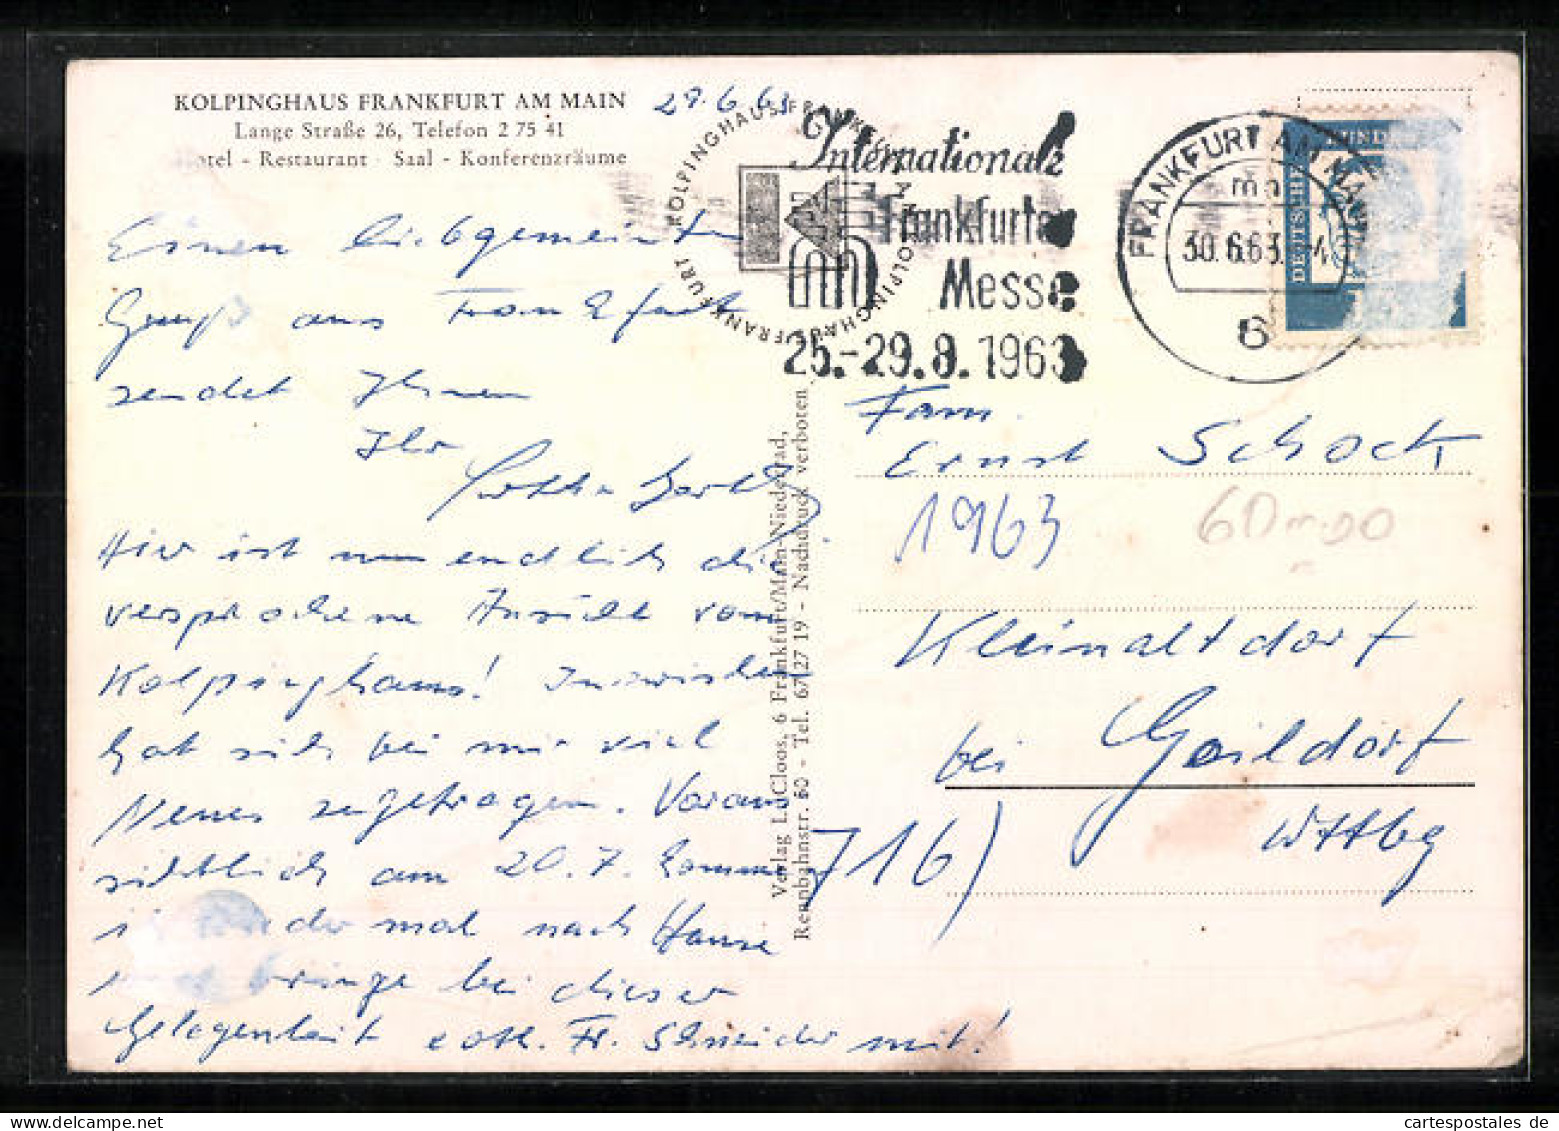 KOLPINGHAUS FRANKFURT AM MAIN
Lange Straße 26, Telefon 2 75 41
Hotel - Restaurant - Saal - Konferenzräume
29.6.63
KOLPINGHAUS FRANKFURT KOLPINGHAUS FRANKFURT
Internationale
Frankfurter
Messe
25.-29.8.1963
FRANKFURT AM MAIN
mn
30.6.63
6
DEUTSCHE
Einen liebgemeinten
Gruß aus Frankfurt
sendet Ihnen
Ihr
Hier ist nun endlich die
versprochene Ansicht vom
Kolpinghaus! Inzwischen
hat sich bei mir viel
Neues zugetragen. Voraus
sichtlich am 20.7. komme
ich mal nach Hause
bringe bei dieser
Gelegenheit evtl. Fr. Schneider mit!
Verlag L. Cloos, 6 Frankfurt/Main-Niederrad,
Rennbahnstr. 60 - Tel. 67 27 19 - Nachdruck verboten
Fam.
Ernst Schock
1963
Kleinaltdorf
bei Gaildorf
716)
Wttbg
cartespostales de